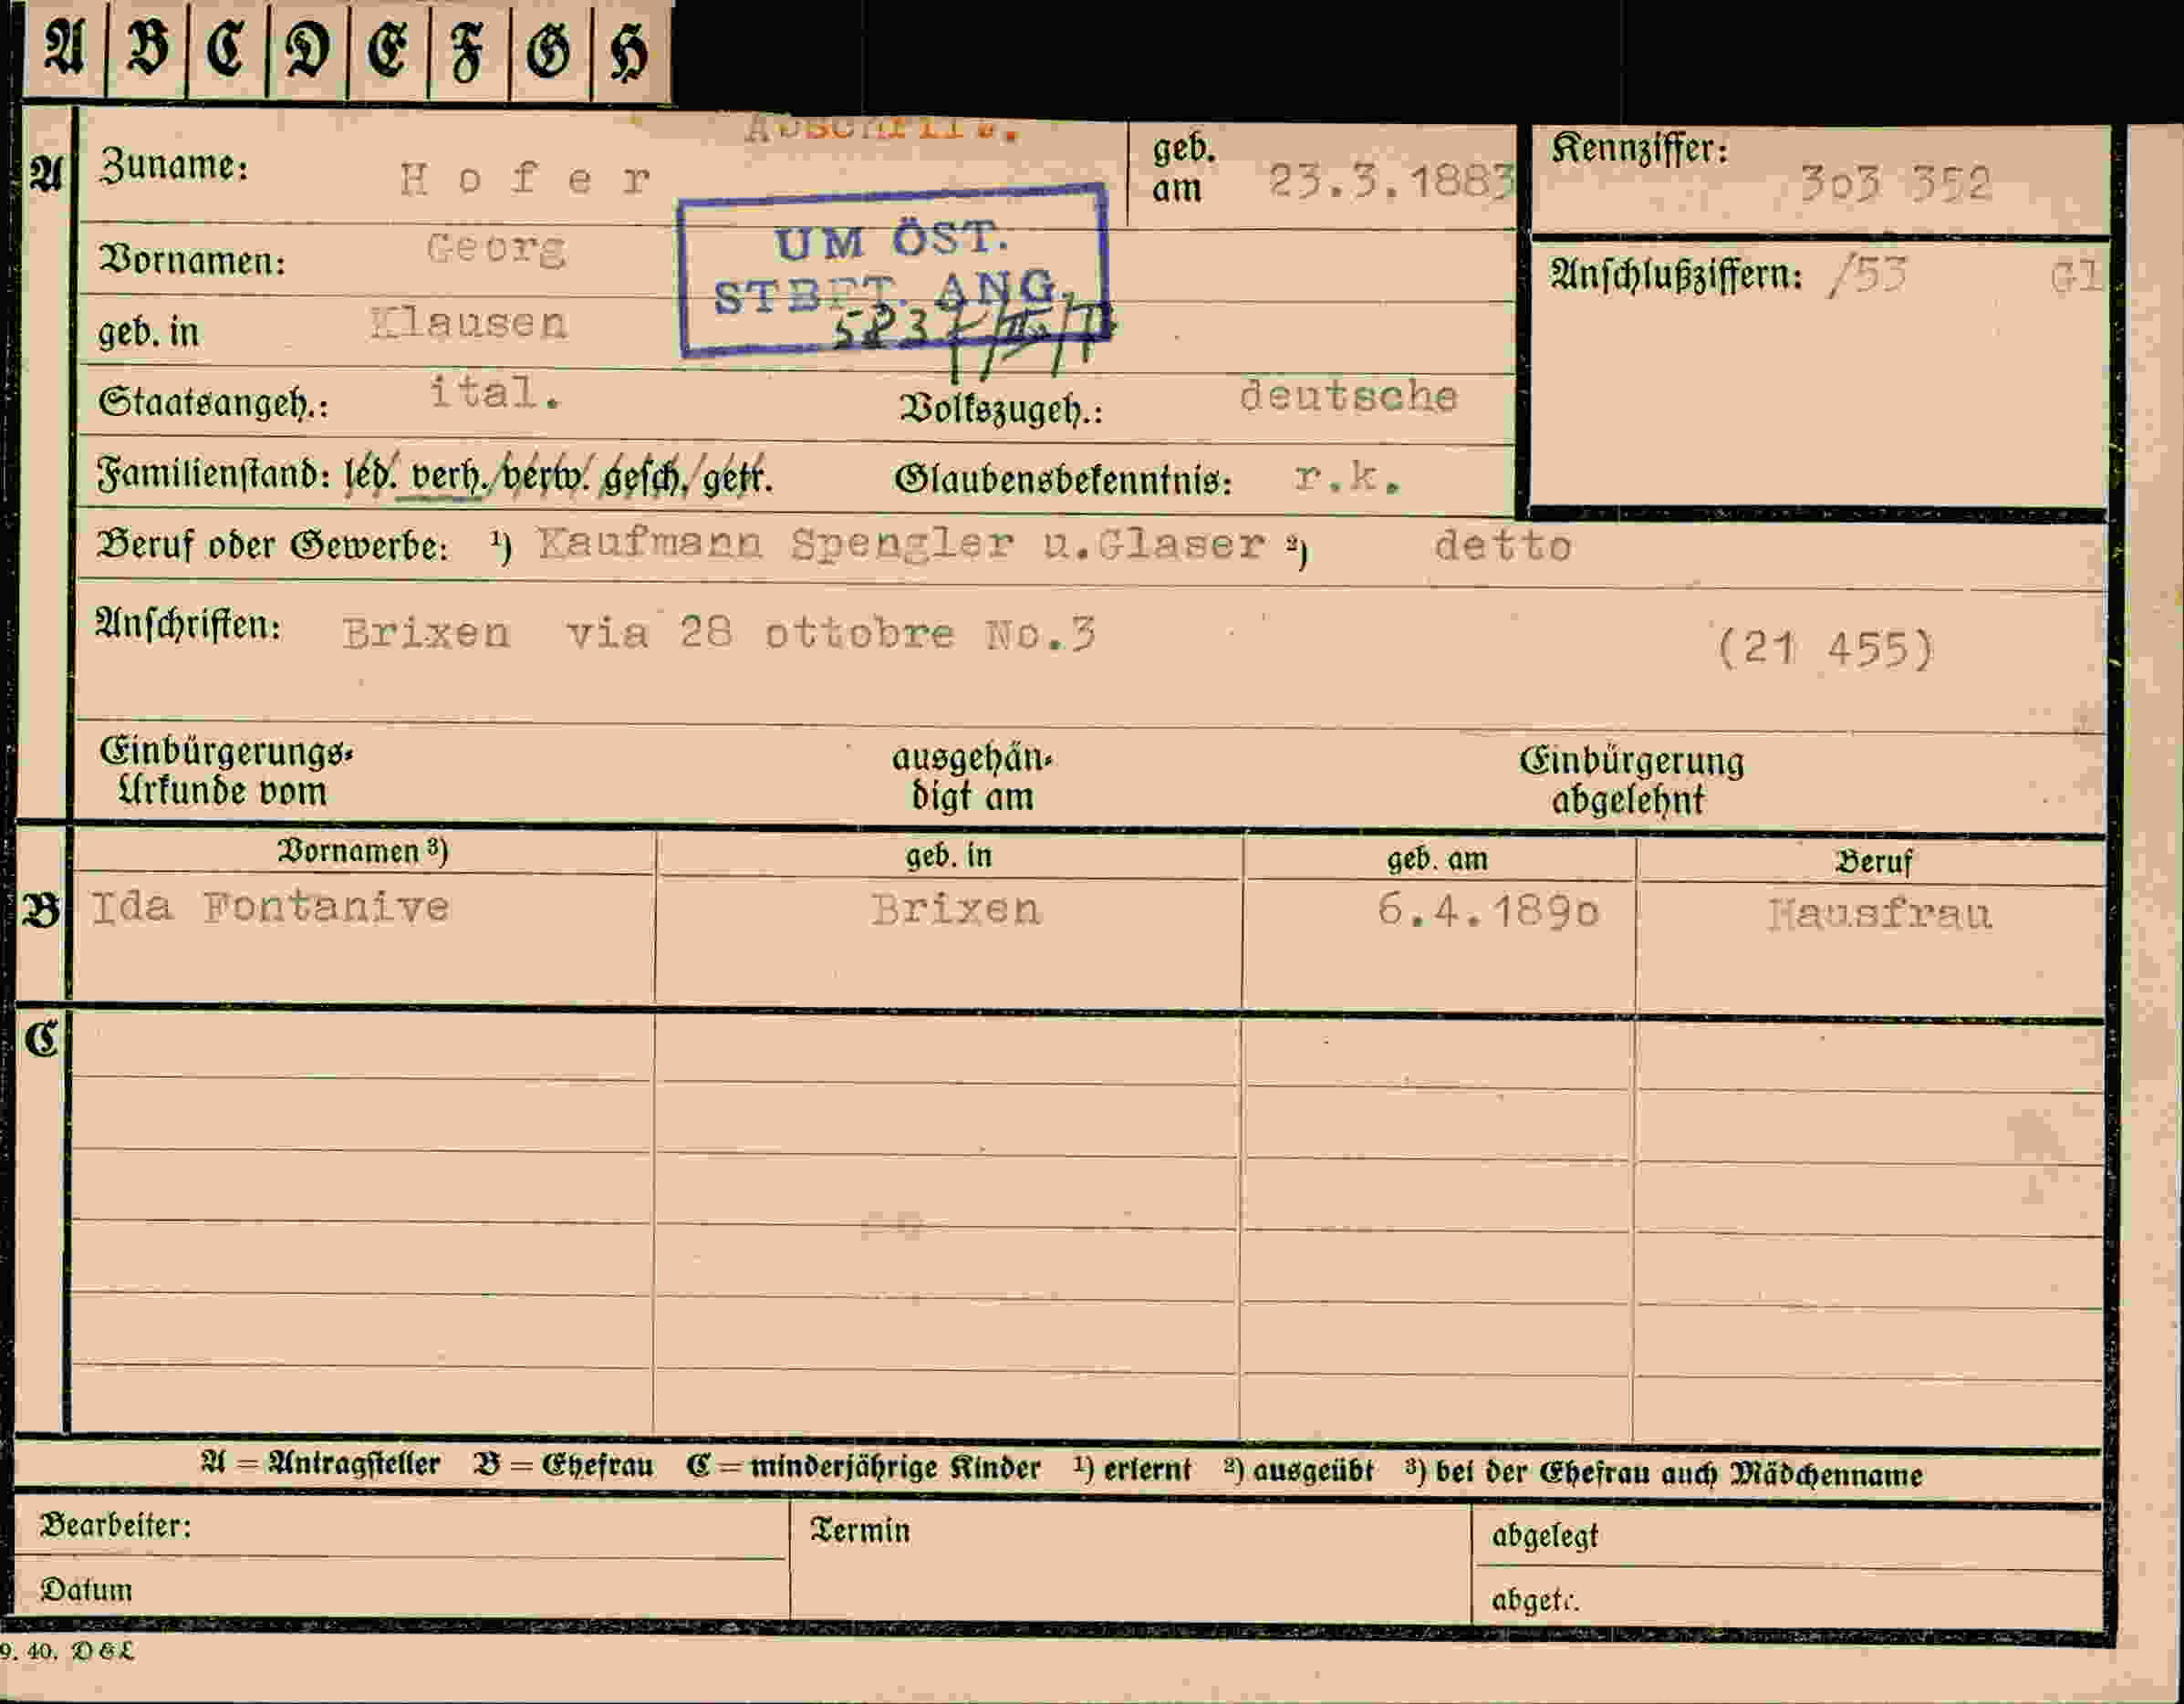 A B C D E F G H
Abschrift.
A Zuname: Hofer geb. am 23.3.1883 Kennziffer: 303 352
UM ÖST.
STBFT. ANG.
Vornamen: Georg
Anschlußziffern: /53 Gl
geb. in Klausen
Staatsangeh.: ital. Volkszugeh.: deutsche
Familienstand: led. verh./verw. gesch./getr. Glaubensbekenntnis: r.k.
Beruf oder Gewerbe: ¹) Kaufmann Spengler u.Glaser ²) detto
Anschriften: Brixen via 28 ottobre No.3 (21 455)
Einbürgerungs- ausgehän- Einbürgerung
Urkunde vom digt am abgelehnt
Vornamen ³) geb. in geb. am Beruf
B Ida Fontanive Brixen 6.4.1890 Hausfrau
C
A = Antragsteller B = Ehefrau C = minderjährige Kinder ¹) erlernt ²) ausgeübt ³) bei der Ehefrau auch Mädchenname
Bearbeiter: Termin abgelegt
Datum abgetr.
9. 40. D & L